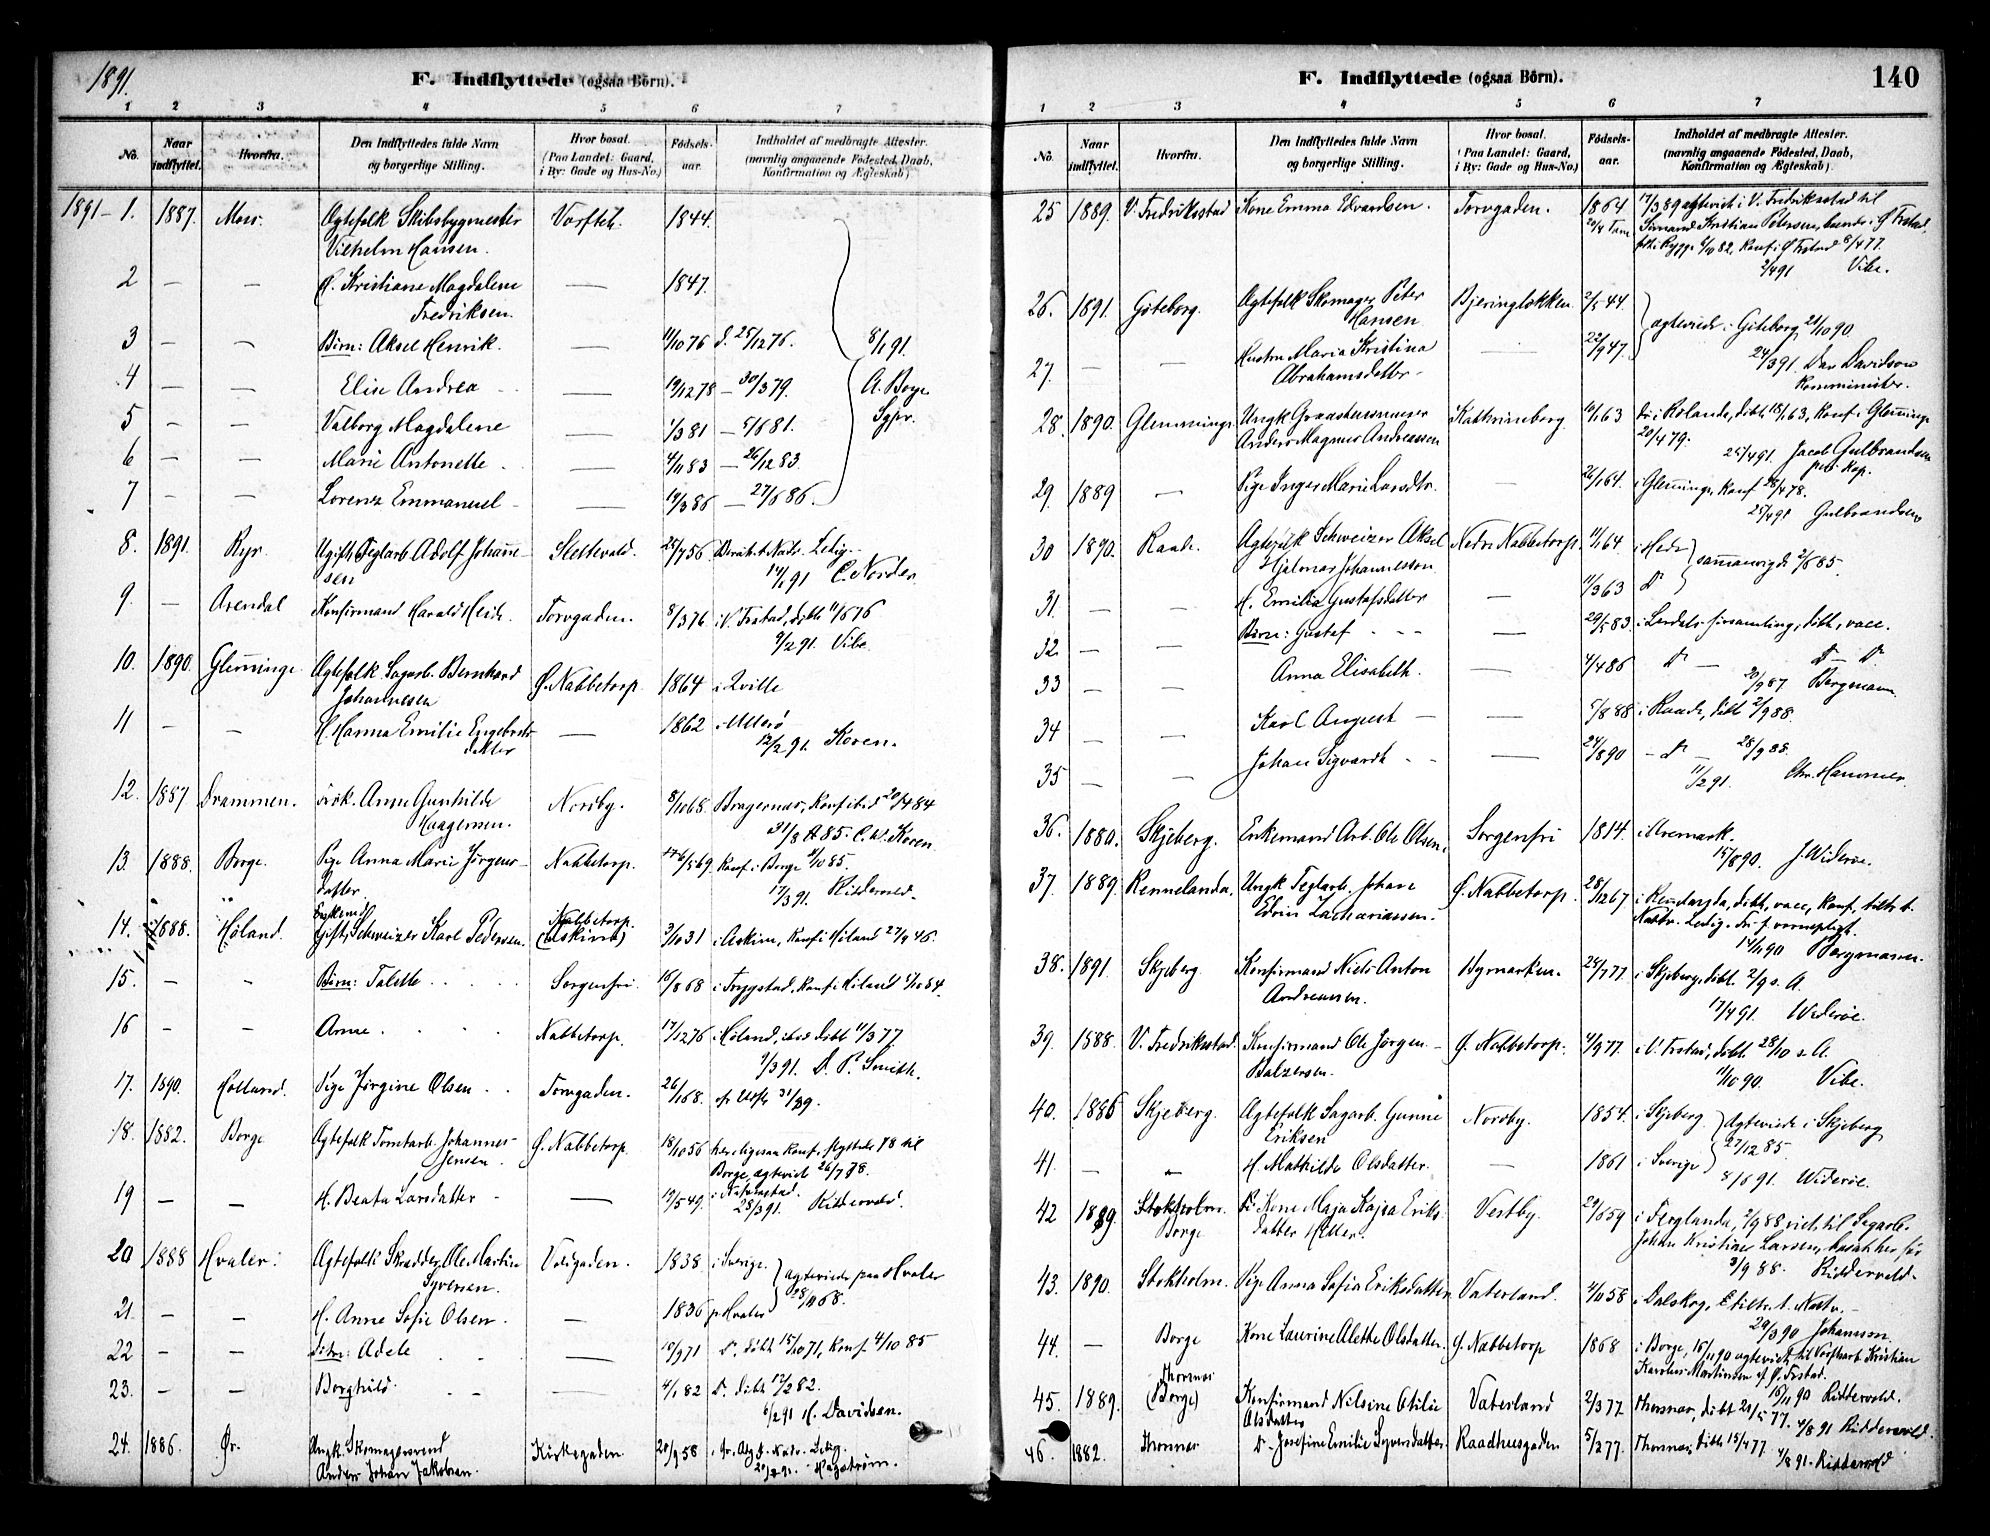 1891.
F. Indflyttede (ogsaa Børn).
1 2 3 4 5 6 7
No.
Naar indflyttet.
Hvorfra.
Den Indflyttedes fulde Navn og borgerlige Stilling.
Hvor bosat. (Paa Landet: Gaard, i By: Gade og Hus-No.)
Fødsels-aar.
Indholdet af medbragte Attester. (navnlig angaaende Fødested, Daab, Konfirmation og Ægteskab)
1891 - 1. 1887. Moss. Ægtefolk Skibsbygmester 1844.
Vilhelm Hansen.
2 — — H. Kristiane Magdalene — 1847.
Fredriksen.
3 — — Børn: Aksel Henrik. — 11/10 76 d. 25/12 76. 8/1 91.
4 — — Elise Andrea — 19/12 78 — 30/3 79. A. Borge
5 — — Valborg Magdalene — 1/3 81 — 5/6 81. Sgpr.
6 — — Marie Antonette — 4/11 83 — 26/12 83.
7 — — Lorenz Emmanuel — 19/3 86 — 27/6 86.
8. 1891. Ugift Teglarb. Adolf Johanne- 25/7 56 Ledig.
sen 14/1 91 C. Norder.
9. — Arendal Konfirmand Harald Torvgaden. 8/3 76. i V. Frstad, døbt 11/6 76
9/2 91. Vibe.
10. 1890. Glemminge Ægtefolk Sagarb. Bernhard Ø. Nabbetorp. 1864 i Qville
Johannesen
11 — — H. Hanna Emilie Engebrets- — 1862
datter 12/2 91. Koren.
12. 1887. Drammen. Anne Gunhilde Nordby. 8/10 68. Bragernæs, Konf ibid 20/4 84
Haagensen. 31/8 85. C. W. Koren.
13. 1888. Borge. Pige Anna Marie Jørgens- Nabbetorp. Konf. i Borge 4/10 85.
datter 17/3 91. Ridderveld.
14. 1888. Høland. Enkemd Nabbetorp.
Gift, Schweizer Karl Pedersen. (Askim) 3/10 31 i Askim, Konf i Høland 27/9 46.
15. — — Børn: Talette Sorgenfri. 15/8 68 i Trygstad, Konf i Høland
16 — — Anne Nabbetorp. 17/12 76 i Høland, ibid døbt 11/3 77
1/3 91. D. P. Smith.
17. 1890. Pige Jørgine Olsen Torvgaden. 26/1 68.
18. 1882. Borge Ægtefolk Tomtarb. Johannes Ø. Nabbetorp. 18/10 56 her ligesaa Konf., flyttede 78 til
Jensen. Borge, ægteviet 26/7 78.
19 — — H. Beata Larsdatter — 19/5 49.
28/3 91. Ridderveld.
20 1888 Hvaler. Ægtefolk Skrædder Ole Martin Voldgaden. 1838. i Sverige. ægteviede paa Hvaler
Syversen. 68.
21. — — H. Anne Sofie Olsen. — 1836 p. Hvaler
22 — — Børn: Adele — 10/9 71 Do. døbt 15/10 71, Konf 4/10 85
23. — — Borghild — 4/1 82 Do. døbt 12/2 82.
6/2 91 H. Davidsen.
24. 1886. Ør. Ungk. Skomagersvend Kirkegaden. 20/9 58 Ledig.
Anders Johan Jakobsen. Hagstrøm.
F. Indflyttede (ogsaa Børn).
140
1 2 3 4 5 6 7
No.
Naar indflyttet.
Hvorfra.
Den Indflyttedes fulde Navn og borgerlige Stilling.
Hvor bosat. (Paa Landet: Gaard, i By: Gade og Hus-No.)
Fødsels-aar.
Indholdet af medbragte Attester. (navnlig angaaende Fødested, Daab, Konfirmation og Ægteskab)
25 1889. V. Fredriksstad Kone Emma Edvardsen. Torvgaden. 1864 17/3 89 ægteviet i V. Fredriksstad til
Kristian Petersen, boende i Ø Frstad,
Konf i Ø Frstad 8/4 77.
2/4 91 Vibe.
26. 1891. Gøteborg. Ægtefolk Skomager Peter Bjeringløkken. 2/5 44.
Hansen ægteviede i Gøteborg 21/10 90.
27. — — Hustru Maria Kristina — 22/9 47.
Abrahamsdatter. 24/3 91. Dan Davidson
Komminister.
28. 1890. Glemminge. Ungk Graastensmurer Kathrineborg. 10/1 63 døbt 18/1 63, Konf i Glemminge
Anders Magnus Andreassen 20/4 79.
25/4 91. Jacob Gulbrandsen
pers Kap.
29. 1889 — Pige Inger Marie Larsdtr. 26/1 64. i Glemminge, Konf 28/4 78.
25/4 91 Gulbrandsen
30 1890. Raade. Ægtefolk Schweizer Aksel Nedre Nabbetorp. 11/1 64 i Hede
Hjalmar Johannesson. sammenvigde 2/6 85.
31. — — H. Emilia Gustafsdatter — 11/3 63 Do
32 — — Børn: Gustaf — 29/5 83. døbt, vacc.
33 — — Anna Elisabeth. — 4/4 86 Do — Do — Do.
20/9 87 Bergmann.
34 — — Karl August — 5/8 88 i Raade, døbt 2/9 88.
35 — — Johan Sigvardt — 24/8 90 — Do — 28/9 88.
11/2 91. Chr. Hammer.
36. 1880. Skjeberg. Enkemand Arb. Ole Olsen, Sorgenfri 1814. i Aremark.
15/8 90. J. Widerøe.
37. 1889. Rennelanda. Ungk Teglarb. Johan Ø. Nabbetorp. 28/12 67 døbt, vacc, Konf,
Edvin Zachariassen. Nattv. Ledig.
14/11 90 Bergmann.
38. 1891. Skjeberg. Konfirmand Niels Anton Bymarken. 28/7 77. i Skjeberg, døbt 2/9 s. A.
Andreassen. 17/4 91. Widerøe.
39. 1888. V. Fredriksstad. Konfirmand Ole Jørgen Ø. Nabbetorp. 4/9 77. i V. Frstad, døbt 28/10 s. A.
Balzersen. 11/10 90. Vibe.
40. 1886 Skjeberg. Ægtefolk Sagarb. Gunne Nordby. 1854. i Skjeberg ægteviede i Skjeberg
Eriksen 27/12 85.
41. — — H. Mathilde Olsdatter. — 1861 i Sverige
8/6 91. Widerøe.
42 1889. Stokholm. Kone Maja Kajsa Eriks- Vestby. 29/6 59 2/9 88 viet til Sagarb.
Borge datter Johan Kristian Larsen,
3/9 88. Ridderveld.
43. 1890. Stokholm. Pige Anna Sofia Eriksdatter Vaterland. 4/10 58 i Dalskog, tiltr. t. Nattv.
29/3 90 Johansson.
44. — Borge Kone Laurine Alette Olsdatter. Ø. Nabbetorp 1868 i Borge, ægteviet til Kristian
Karolius Martinsen af Ø. Frstad.
15/11 90 Ridderveld.
45. 1889. Thorsnæs (Borge) Konfirmand Nilsine Otilie Vaterland 2/3 77. Thorsnæs, døbt 21/5 77. 4/8 91 Ridderveld.
Olsdatter
46. 1882. Thorsnæs Do. Josefine Emilie Syversdatter. Raadhusgaden 5/2 77. Thorsnæs, døbt 15/4 77. 4/8 91. Ridderveld